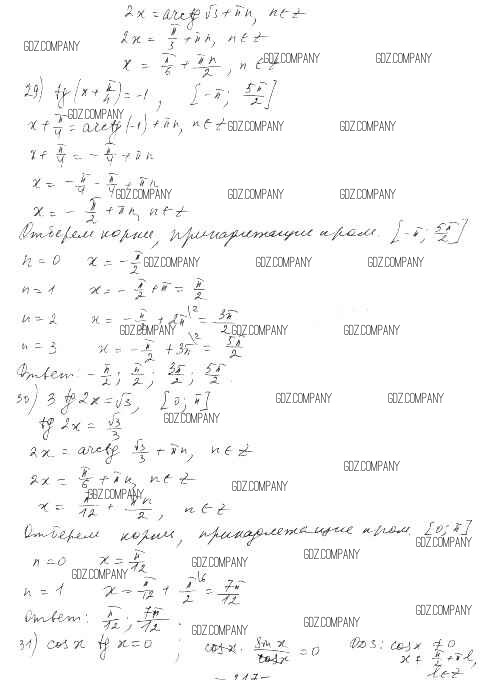 2x = arctg √3 + πn, n ∈ Z
2x = π/3 + πn, n ∈ Z
GDZ.COMPANY
x = π/6 + πn/2, n ∈ Z
GDZ.COMPANY GDZ.COMPANY
29) tg(x + π/4) = -1, [-π; 5π/2]
GDZ.COMPANY
x + π/4 = arctg(-1) + πn, n ∈ Z
GDZ.COMPANY GDZ.COMPANY
x + π/4 = -π/4 + πn
x = -π/4 - π/4 + πn
GDZ.COMPANY GDZ.COMPANY GDZ.COMPANY
x = -π/2 + πn, n ∈ Z
Отберем корни, принадлежащие пром. [-π; 5π/2]
n = 0 x = -π/2
GDZ.COMPANY GDZ.COMPANY GDZ.COMPANY
n = 1 x = -π/2 + π = π/2
n = 2 x = -π/2 + 2π\2 = 3π/2
GDZ.COMPANY GDZ.COMPANY GDZ.COMPANY
n = 3 x = -π/2 + 3π\2 = 5π/2
Ответ: -π/2; π/2; 3π/2; 5π/2.
GDZ.COMPANY GDZ.COMPANY
30) 3 tg 2x = √3, [0; π]
GDZ.COMPANY GDZ.COMPANY
tg 2x = √3/3
GDZ.COMPANY
2x = arctg √3/3 + πn, n ∈ Z
GDZ.COMPANY
2x = π/6 + πn, n ∈ Z
GDZ.COMPANY GDZ.COMPANY
x = π/12 + πn/2, n ∈ Z
Отберем корни, принадлежащие пром. [0; π]
GDZ.COMPANY
n = 0 x = π/12
GDZ.COMPANY GDZ.COMPANY
GDZ.COMPANY
n = 1 x = π/12 + π/2\6 = 7π/12
GDZ.COMPANY
Ответ: π/12; 7π/12.
GDZ.COMPANY GDZ.COMPANY GDZ.COMPANY
31) cos x tg x = 0; cos x · sin x/cos x = 0 ОДЗ: cos x ≠ 0
x ≠ π/2 + πl,
l ∈ Z
- 217 -